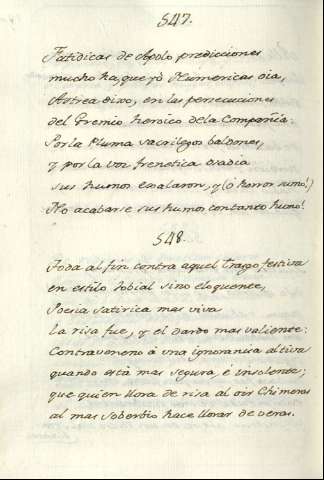 547.
Fatidicas de Apolo predicciones
mucho ha, que yò Numericas oia,
Astrea dixo, en las persecuciones
del Gremio heroico dela Compañia:
Por la Pluma sacrilegos baldones,
y por la voz frenetica osadia
sus humos exalaron, y (ò horror sumo!)
No acabarse sus humos con tanto humo!
548.
Toda al fin contra aquel Trasgo festiva
en estilo jobial sino eloquente,
Poesia satirica mas viva
la risa fue, y el dardo mas valiente:
Contraveneno à una ignorancia altiva
quando està mas segura, è insolente;
que quien llora de risa al oir Chimeras
al mas soberbio hace llorar de veras.